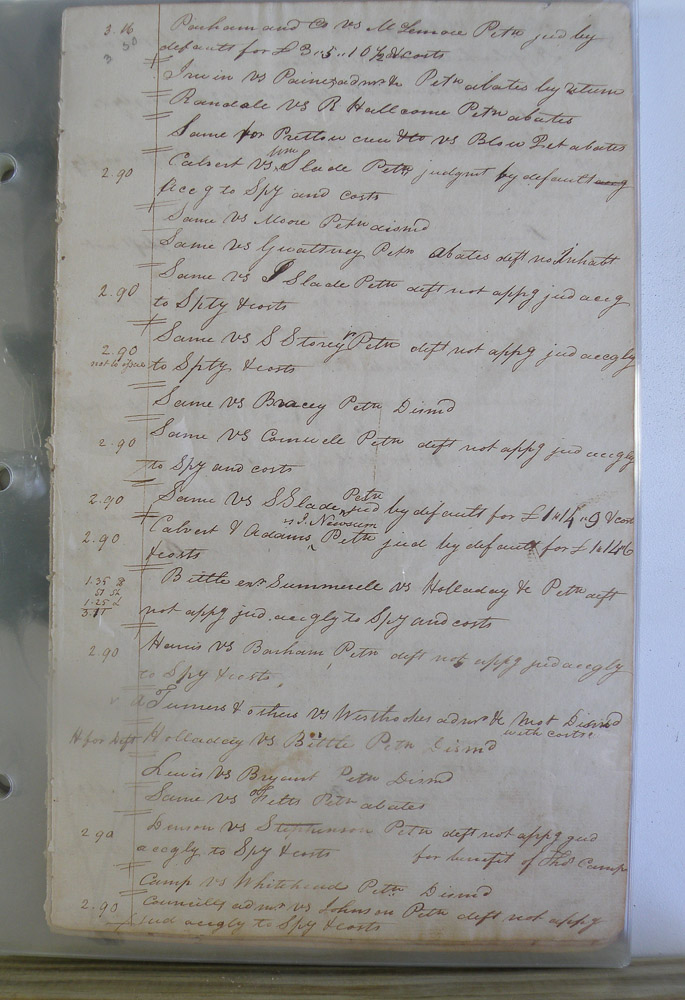 3.16 Parham and Co vs McLemore Petn jud by
3 50 defaults for £3..5..10½ & costs
Irwin vs Paine admr &c Petn abates by return
Randale vs R Hallcome Petn abates
Same for Pretlow &c vs Blow Pet abates
2.90 Calvert vs Wm Slade Petn judgmt by default
accg to Spy and costs
Same vs Moore Petn dismd
Same vs Gwaltney Petn abates deft no Inhabt
Same vs J Slade Petn deft not appg jud accg
2.90 to Spty & costs
2.90 Same vs S Storey Petn deft not appg jud accgly
not to issue to Spty & costs
Same vs Bracey Petn Dismd
2.90 Same vs Council Petn deft not appg jud accgly
to Spy and costs
2.90 Same vs S Slade Petn jud by default for £1..14..9 & cost
2.90 Calvert & Adams vs J. Newsum Petn jud by default for £1..14..6
& costs
1.35 Bittle exr Summerell vs Holladay &c Petn deft
1.25
3.11 not appg jud. accgly to Spy and costs
2.90 Harris vs Barham Petn deft not appg jud accgly
to Spy & costs
Turners & others vs Westbrookes admr &c Mot Dismd
with costs
H for Deft Holladay vs Bittle Petn Dismd
Lewis vs Bryant Petn Dismd
Same vs Fitts Petn abates
2.90 Denson vs Stephenson Petn deft not appg jud
accgly to Spy & costs for benefit of Thos Camp
Camp vs Whitehead Petn Dismd
2.90 Councills admr vs Johnson Petn deft not appg
jud accgly to Spy & costs